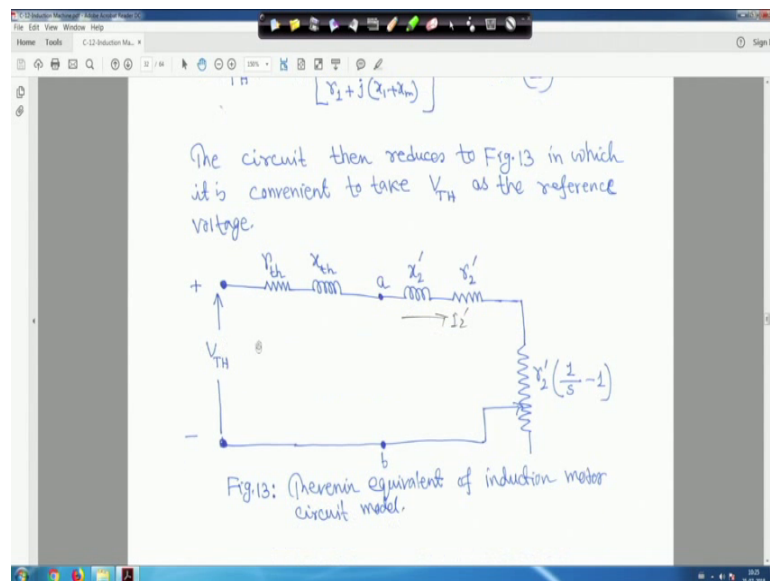 C-12-Induction Machine.pdf - Adobe Acrobat Reader DC
File Edit View Window Help
Home Tools C-12-Induction Ma... × Sign
32 / 64 150%
TH [r₁ + j(x₁+xₘ)]
The circuit then reduces to Fig.13 in which
it is convenient to take V_TH as the reference
voltage.
r_th x_th a x₂′ r₂′
+
I₂′
V_TH
r₂′(1/s −1)
−
b
Fig.13: Thevenin equivalent of induction motor
circuit model.
10:25